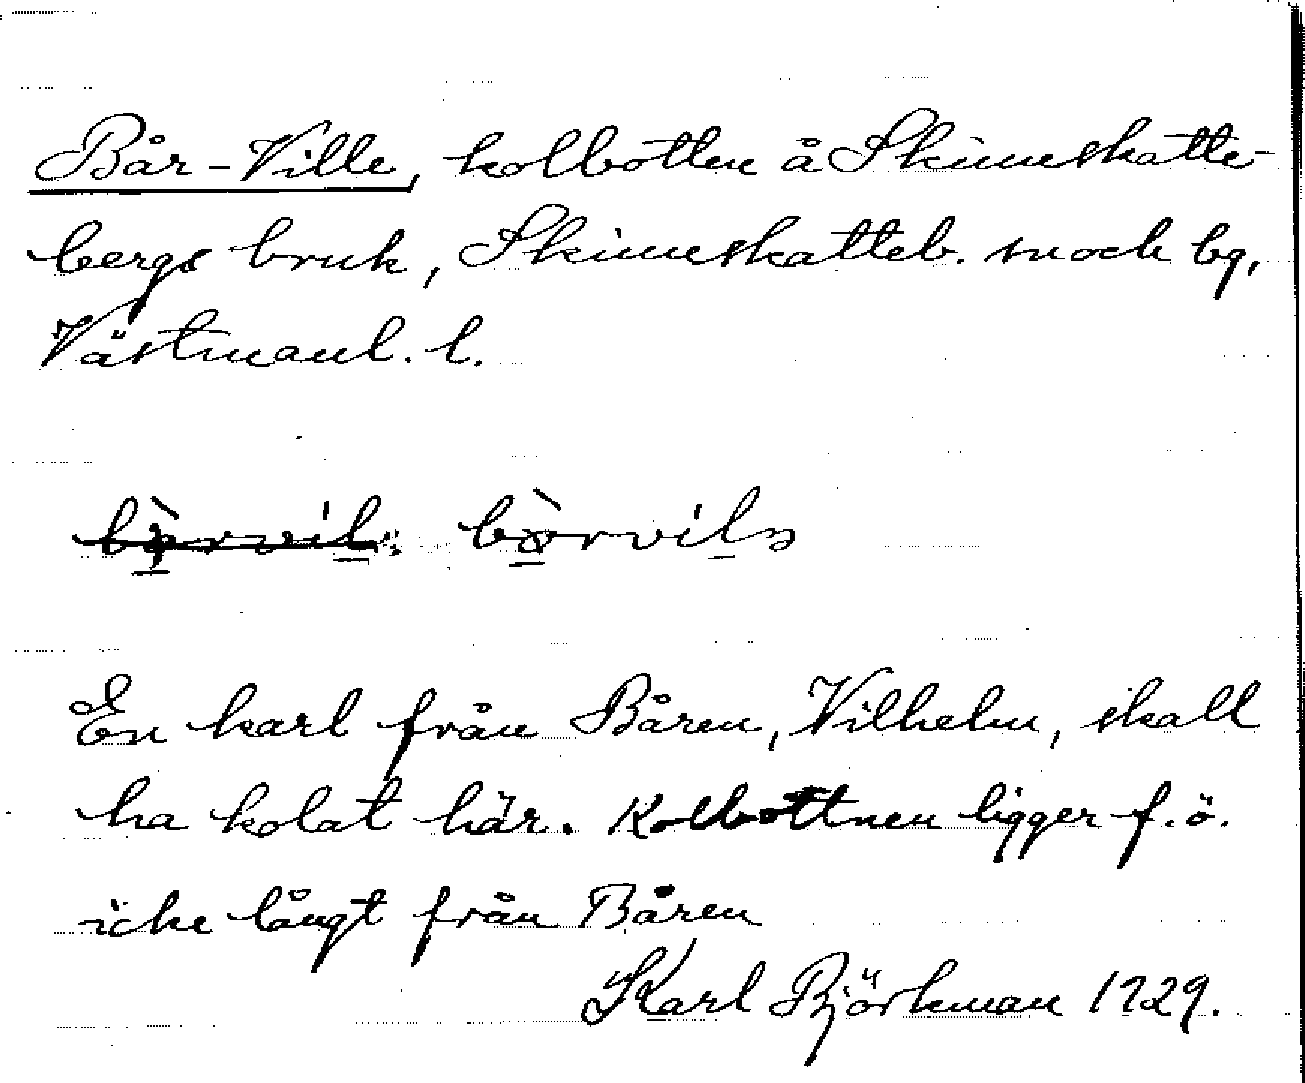 Bår-Ville, kolbotten å Skinnskatte-
bergs bruk, Skinnskatteb. sn och bg,
Västmanl. l.
bòrvilə
En karl från Båren, Vilhelm, skall
ha kolat här. Kolbottnen ligger f.ö.
icke långt från Båren
Karl Björkman 1929.